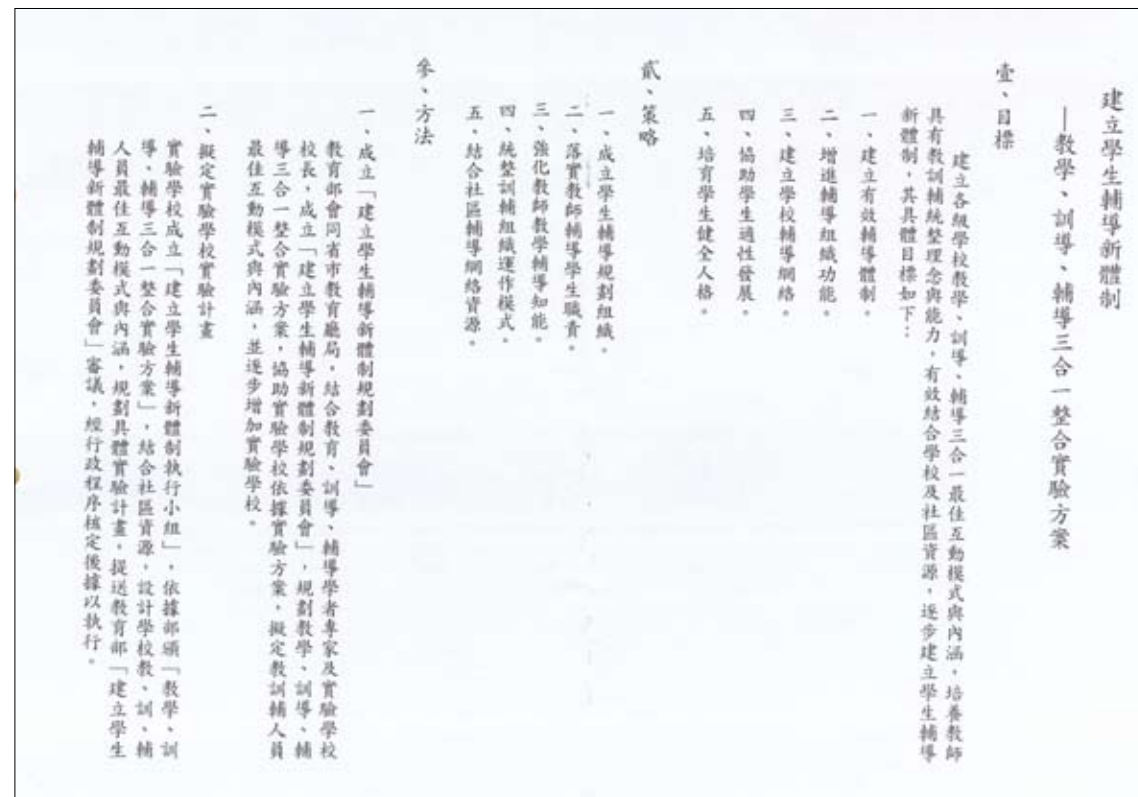 建立學生輔導新體制
——教學、訓導、輔導三合一整合實驗方案
壹、目標
建立各級學校教學、訓導、輔導三合一最佳互動模式與內涵，培養教師
具有教訓輔統整理念與能力，有效結合學校及社區資源，逐步建立學生輔導
新體制，其具體目標如下：
一、建立有效輔導體制。
二、增進輔導組織功能。
三、建立學校輔導網絡。
四、協助學生適性發展。
五、培育學生健全人格。
貳、策略
一、成立學生輔導規劃組織。
二、落實教師輔導學生職責。
三、強化教師教學輔導知能。
四、統整訓輔組織運作模式。
五、結合社區輔導網絡資源。
參、方法
一、成立「建立學生輔導新體制規劃委員會」
教育部會同省市教育廳局，結合教育、訓導、輔導學者專家及實驗學校
校長，成立「建立學生輔導新體制規劃委員會」，規劃教學、訓導、輔
導三合一整合實驗方案，協助實驗學校依據實驗方案，擬定教訓輔人員
最佳互動模式與內涵，並逐步增加實驗學校。
二、擬定實驗學校實驗計畫
實驗學校成立「建立學生輔導新體制執行小組」，依據部頒「教學、訓
導、輔導三合一整合實驗方案」，結合社區資源，設計學校教、訓、輔
人員最佳互動模式與內涵，規劃具體實驗計畫，提送教育部「建立學生
輔導新體制規劃委員會」審議，經行政程序核定後據以執行。